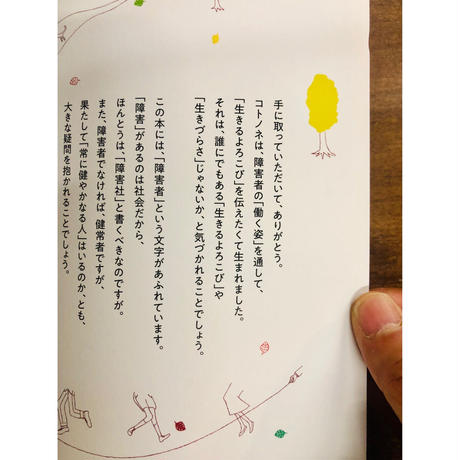 手に取っていただいて、ありがとう。
コトノネは、障害者の「働く姿」を通して、
「生きるよろこび」を伝えたくて生まれました。
それは、誰にでもある「生きるよろこび」や
「生きづらさ」じゃないか、と気づかれることでしょう。
この本には、「障害者」という文字があふれています。
「障害」があるのは社会だから、
ほんとうは、「障害社」と書くべきなのですが。
また、障害者でなければ、健常者ですが、
果たして「常に健やかなる人」はいるのか、とも、
大きな疑問を抱かれることでしょう。